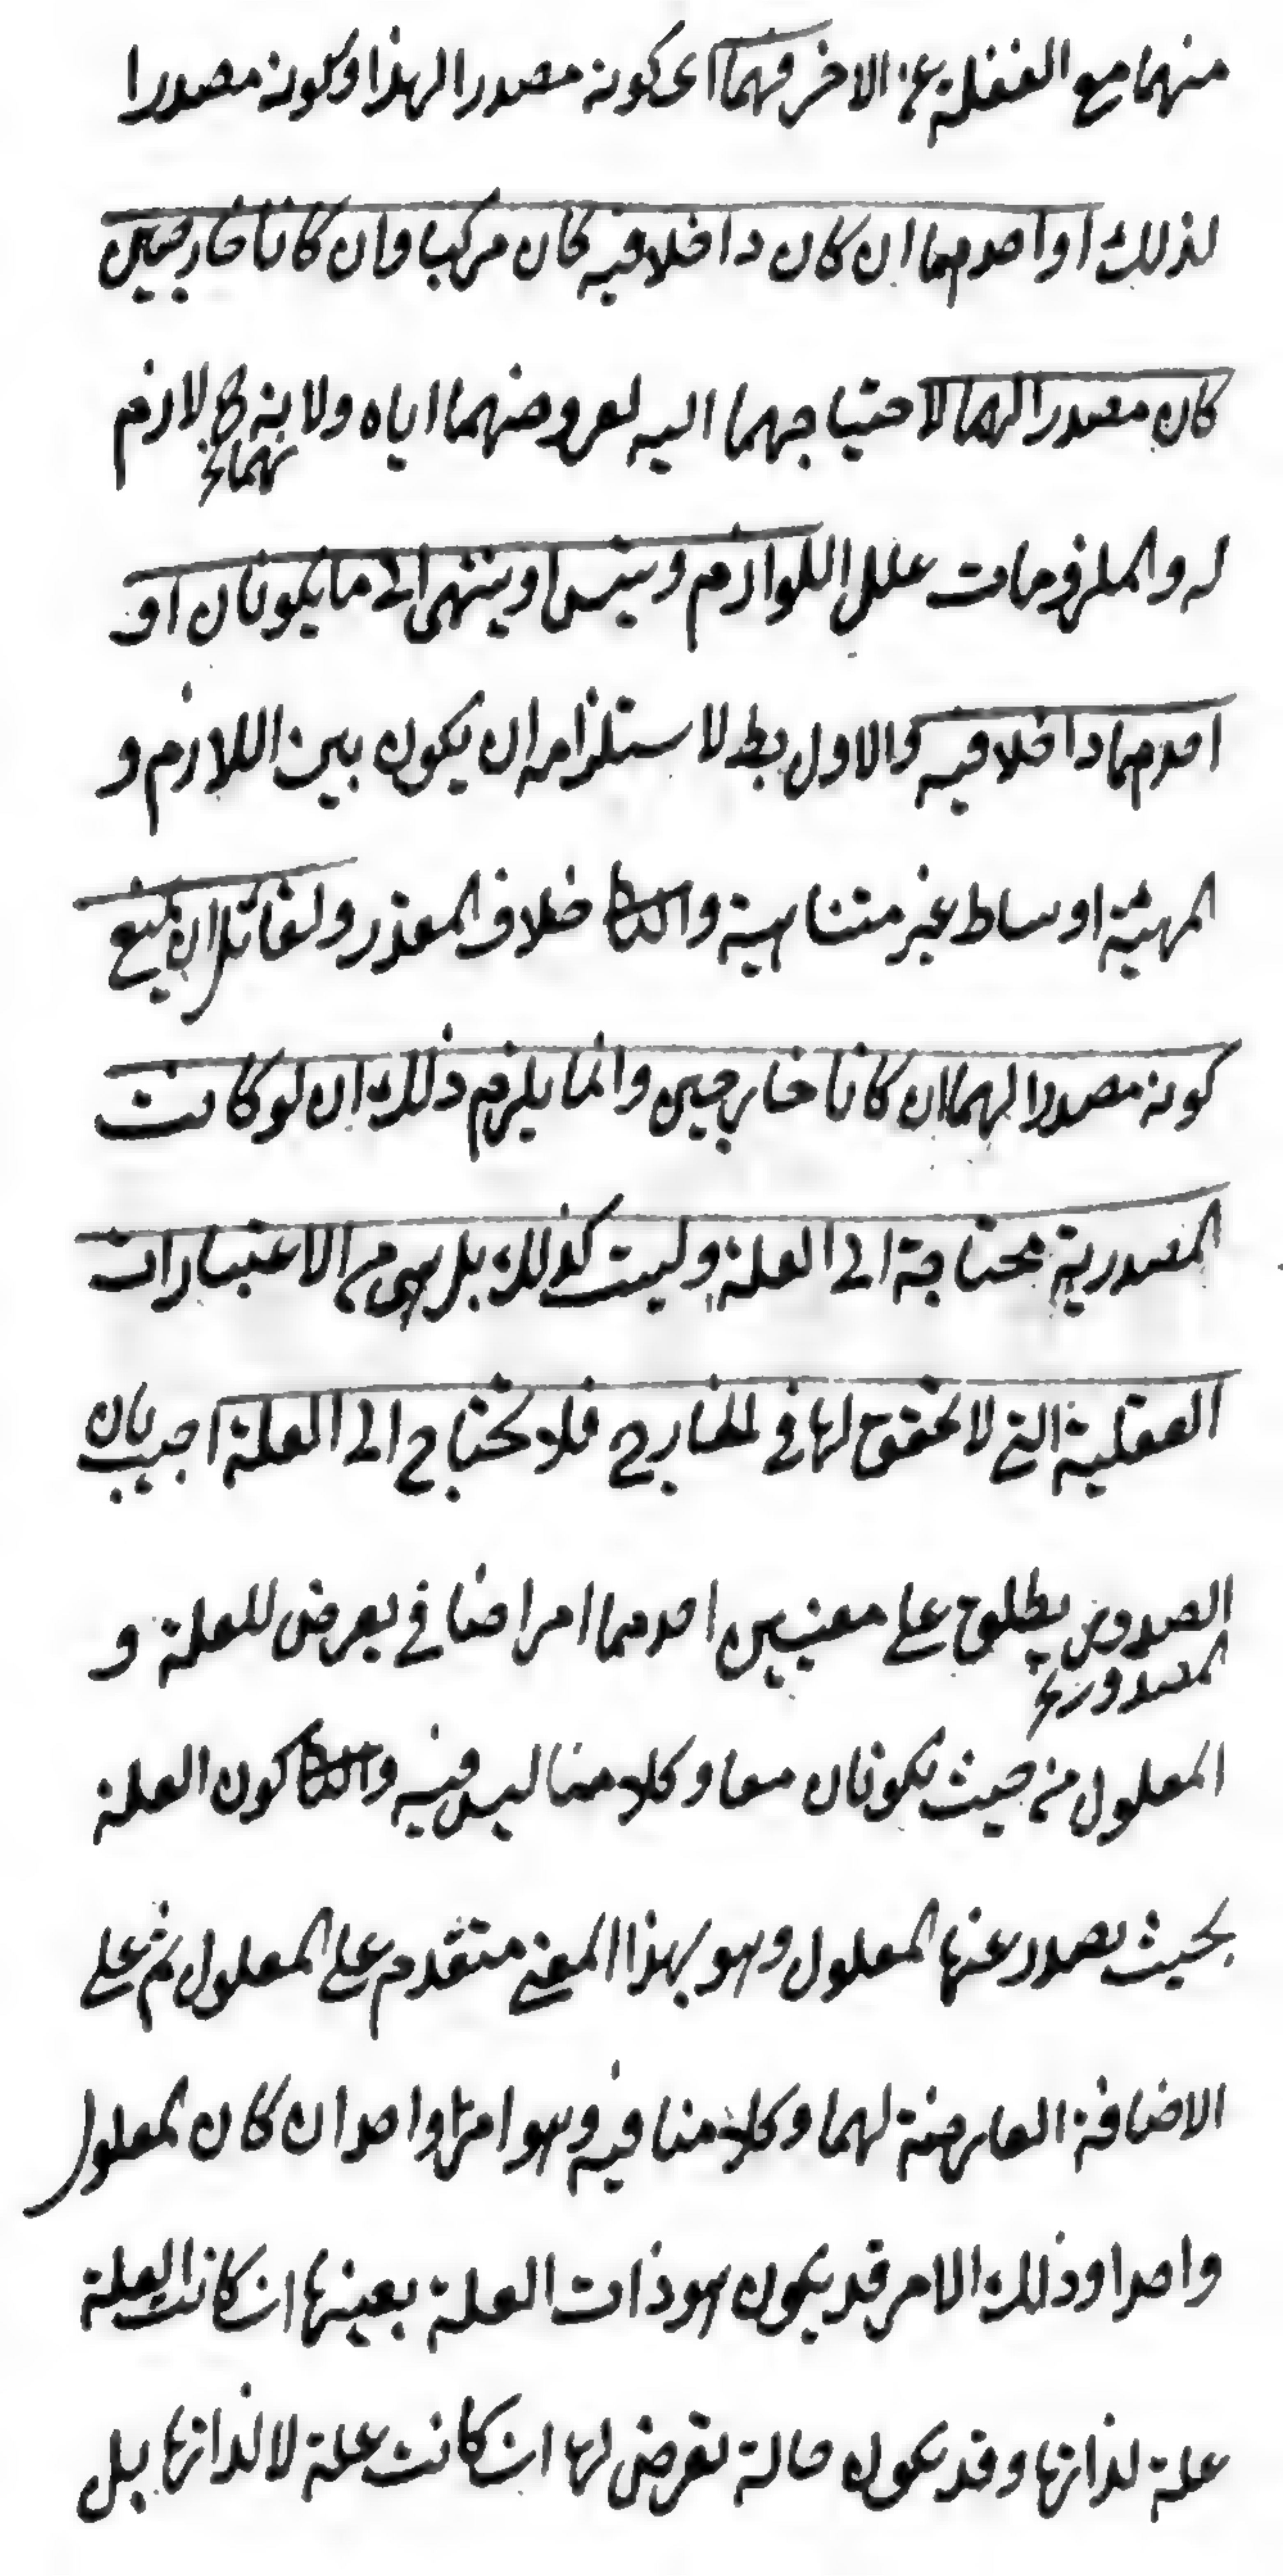 منهما مع الغفلة عن الاخر فهما اى كونه مصدرا لهذا وكونه مصدرا
لذلك او احدهما ان كان داخلا فيه كان مركبا وان كانا خارجين
كان مصدرا لهما لاحتياجهما اليه لعروضهما اياه ولانه لازم
نهما خ
له والملزومات علل اللوازم ويتس او ينتهى الى ما يكونان او
احدهما داخلا فيه والاول بط لاستلزامه ان يكون بين اللازم و
المهية اوساط غير متناهية والثا خلاف المقدر ولقائل ان يمنع
كونه مصدرا لهما ان كانا خارجين وانما يلزم ذلك ان لو كانت
المصدرية محتاجة الى العلة وليست كذلك بل هى من الاعتبارات
العقلية التى لا تحقق لها فى الخارج فلا تحتاج الى العلة اجيب بان
الصدور يطلق على معنيين احدهما امر اضافى يعرض للعلة و
المصدور خ
المعلول من حيث يكونان معا وكلامنا ليس فيه والثا كون العلة
بحيث يصدر عنها المعلول وهو بهذا المعنى متقدم على المعلول ثم على
الاضافة العارضة لهما وكلامنا فيه وهو امر واحد ان كان المعلول
واحدا وذلك الامر قد يكون هو ذات العلة بعينها ان كانت العلة
علة لذاتها وقد يكون حالة تعرض لها ان كانت علة لا لذاتها بل